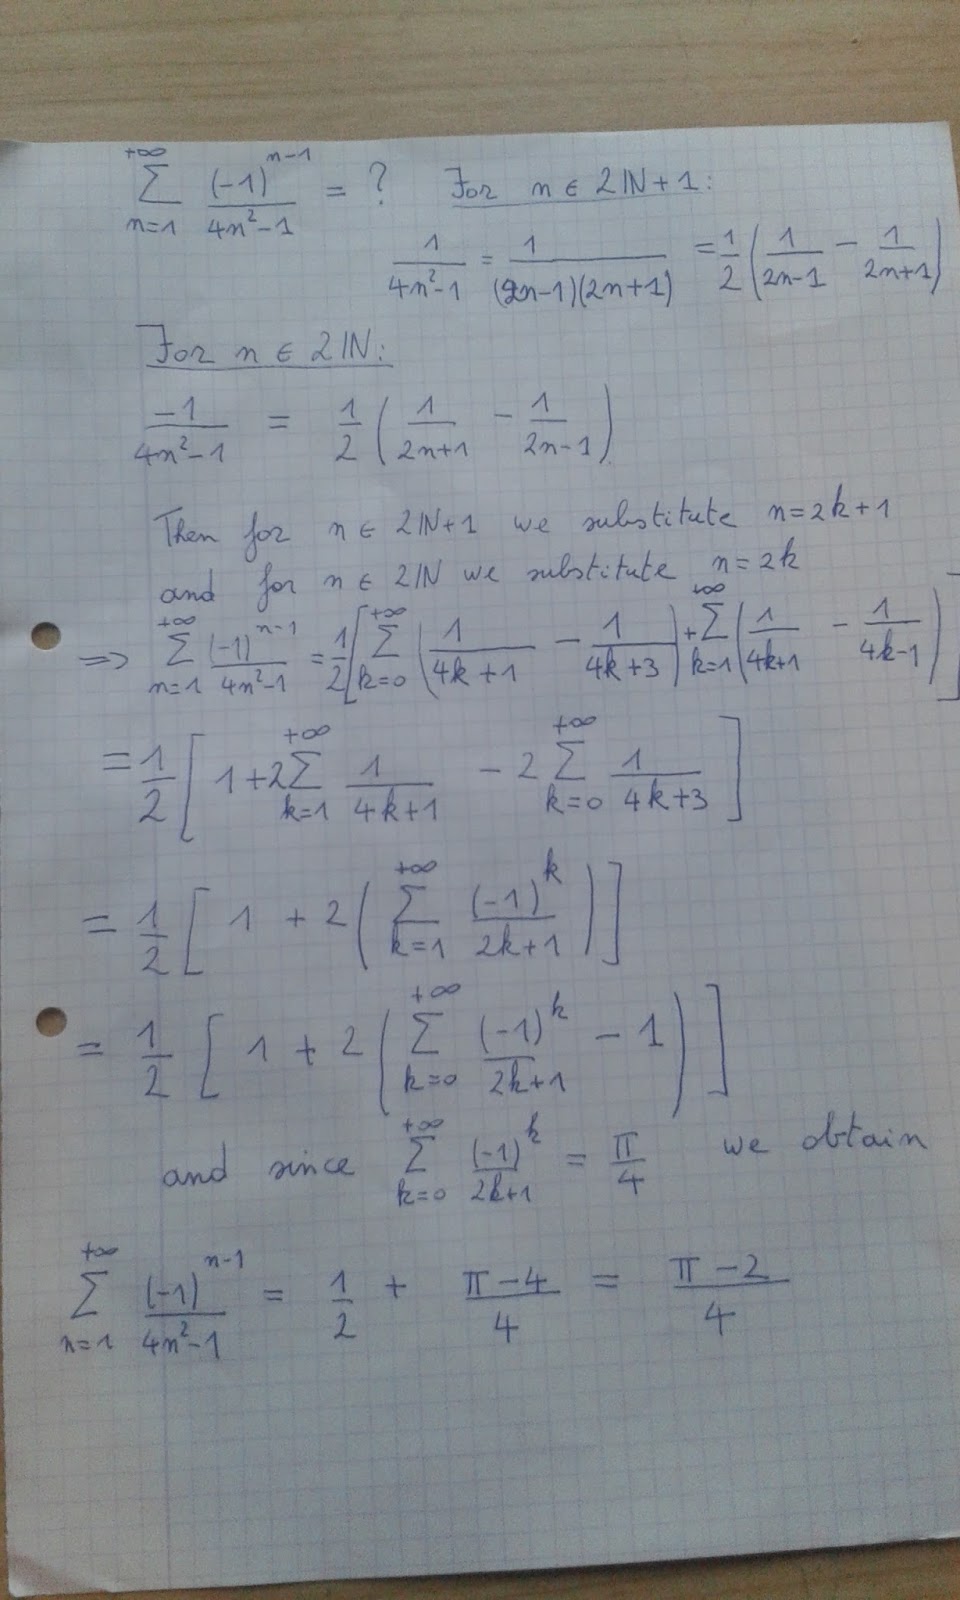 \sum_{n=1}^{+\infty} \frac{(-1)^{n-1}}{4n^2-1} = ? For n ∈ 2ℕ+1:
\frac{1}{4n^2-1} = \frac{1}{(2n-1)(2n+1)} = \frac{1}{2} \left( \frac{1}{2n-1} - \frac{1}{2n+1} \right)
For n ∈ 2ℕ:
\frac{-1}{4n^2-1} = \frac{1}{2} \left( \frac{1}{2n+1} - \frac{1}{2n-1} \right)
Then for n ∈ 2ℕ+1 we substitute n=2k+1
and for n ∈ 2ℕ we substitute n=2k
=> \sum_{n=1}^{+\infty} \frac{(-1)^{n-1}}{4n^2-1} = \frac{1}{2} \left[ \sum_{k=0}^{+\infty} \left( \frac{1}{4k+1} - \frac{1}{4k+3} \right) + \sum_{k=1}^{+\infty} \left( \frac{1}{4k+1} - \frac{1}{4k-1} \right) \right]
= \frac{1}{2} \left[ 1 + 2 \sum_{k=1}^{+\infty} \frac{1}{4k+1} - 2 \sum_{k=0}^{+\infty} \frac{1}{4k+3} \right]
= \frac{1}{2} \left[ 1 + 2 \left( \sum_{k=1}^{+\infty} \frac{(-1)^k}{2k+1} \right) \right]
= \frac{1}{2} \left[ 1 + 2 \left( \sum_{k=0}^{+\infty} \frac{(-1)^k}{2k+1} - 1 \right) \right]
and since \sum_{k=0}^{+\infty} \frac{(-1)^k}{2k+1} = \frac{π}{4} we obtain
\sum_{n=1}^{+\infty} \frac{(-1)^{n-1}}{4n^2-1} = \frac{1}{2} + \frac{π-4}{4} = \frac{π-2}{4}